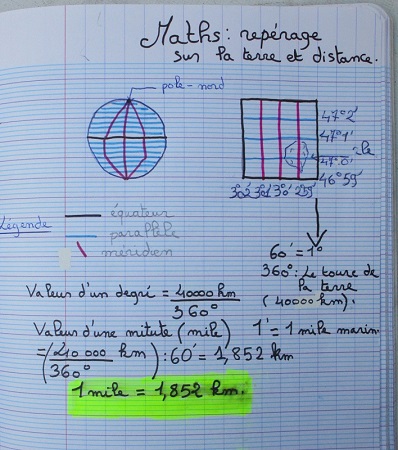 Maths: repérage
sur la terre et distance.
pole-nord
47°2'
47°1'
île
47°0'
46°59'
3°2' 3°1' 3°0' 2°59'
Légende
équateur
parallèle
méridien
60' = 1°
360°: Le toure de
la terre
(40000 km).
Valeur d'un degré = 40000 km
360°
Valeur d'une mitute (mile) 1' = 1 mile marin
= (40 000 km) : 60' = 1,852 km
360°
1 mile = 1,852 km.